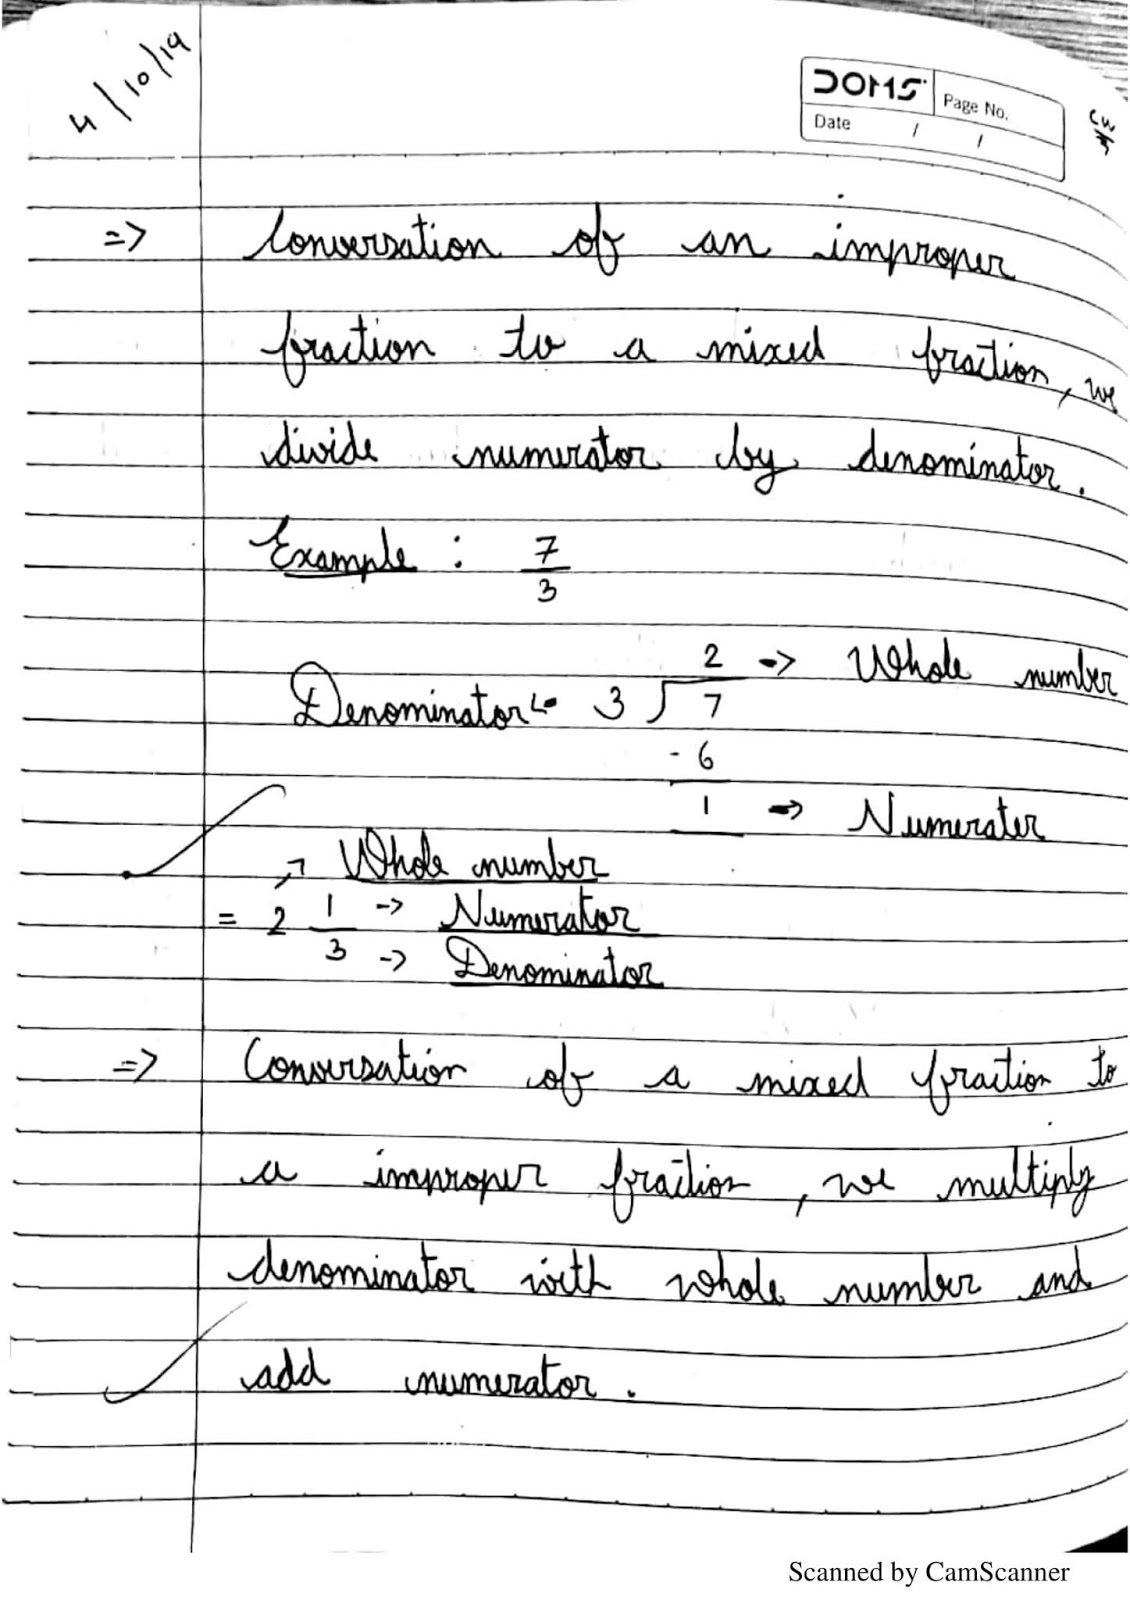 4/10/19
DOMS Page No.
Date / /
CW
=> Conversation of an improper
fraction to a mixed fraction, we
divide numerator by denominator.
Example : 7/3
2 -> Whole number
Denominator <- 3 ) 7
- 6
1 -> Numerater
-> Whole number
= 2 1/3 -> Numerator
-> Denominator
=> Conversation of a mixed fraction to
a improper fraction, we multiply
denominator with whole number and
add numerator.
Scanned by CamScanner